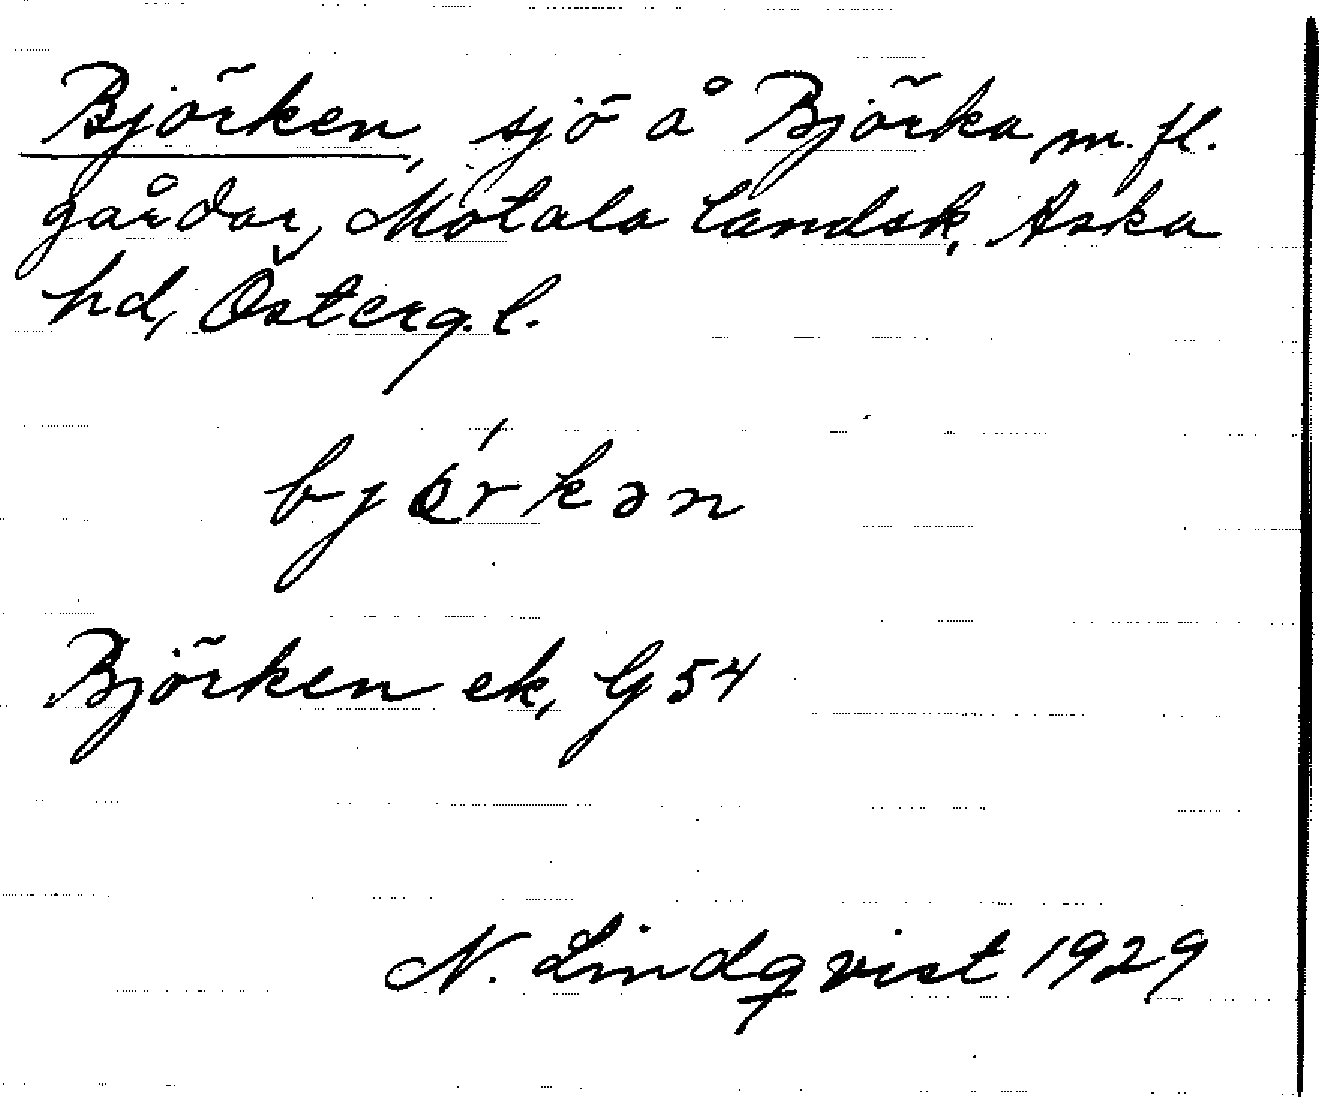 Björken, sjö å Björka m. fl.
gårdar, Motala landsk, Aska
hd, Österg. l.
bjǿrkən
Björken ek, G 54
N. Lindqvist 1929